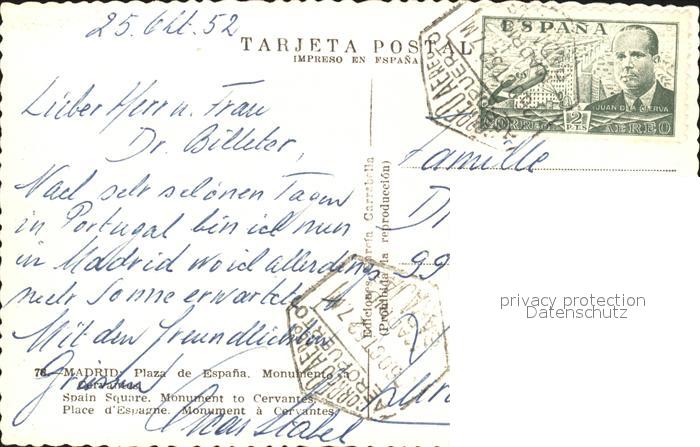 25. Okt. 52
TARJETA POSTAL
IMPRESO EN ESPAÑA
ESPAÑA
JUAN DE LA CIERVA
CORREO 2 PTS AEREO
Lieber Herr u. Frau
Dr. Billeter,
Nach sehr schönen Tagen
in Portugal bin ich nun
in Madrid wo ich allerdings
mehr Sonne erwartete.
Mit den freundlichen
Grüssen
Oscar
Familie
Dr
99
Ediciones García Garrabella
(Prohibida la reproducción)
CORREO AEREO
AEROPUERTO
CORREO AEREO
AEROPUERTO
78 - MADRID: Plaza de España. Monumento a
Cervantes
Spain Square. Monument to Cervantes
Place d'Espagne. Monument à Cervantes
privacy protection
Datenschutz